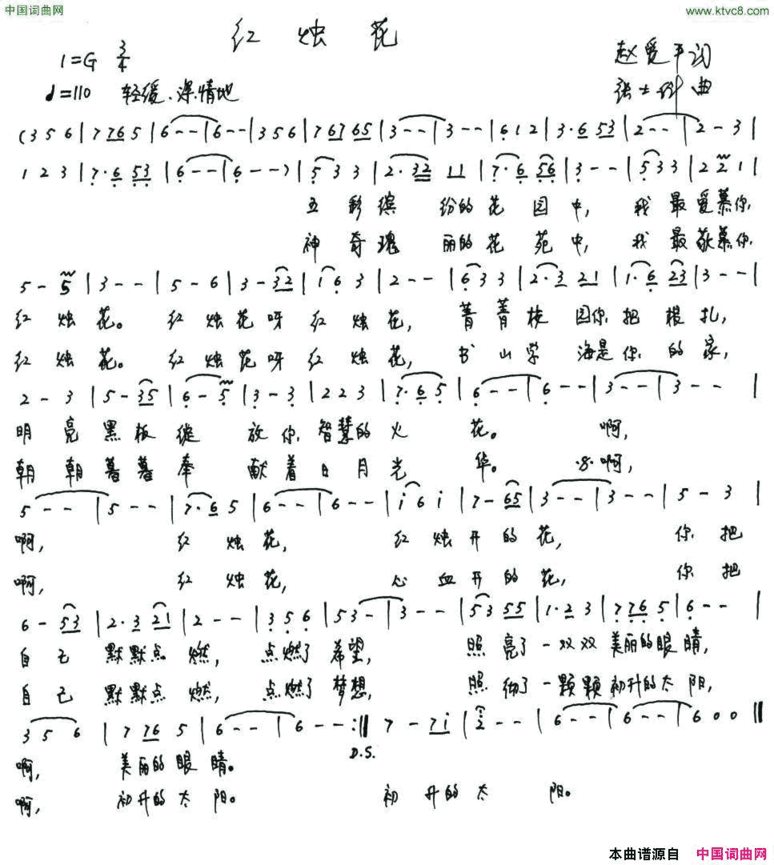 中国词曲网
www.ktvc8.com
红烛花
1=G 3/4
赵爱平词
♩=110 轻缓、深情地
曲
(3 5 6 | 7 7 6 5 | 6 - - | 6 - - | 3 5 6 | 7 6 7 6 5 | 3 - - | 3 - - | 6 1 2 | 3 · 6 5 3 | 2 - - | 2 - 3 |
1 2 3 | 7 · 6 5 3 | 6 - - | 6 - -) | 5 3 3 | 2 · 3 2 1 1 | 7 · 6 5 6 | 3 - - | 5 3 3 | 2 2 1 |
五彩缤 纷的花园中, 我最爱慕你
神奇瑰 丽的花苑中, 我最敬慕你
5 - 5 | 3 - - | 5 - 6 | 3 - 3 2 | i 6 3 | 2 - - | 6 3 3 | 2 · 3 2 1 | 1 · 6 2 3 | 3 - - |
红烛花。 红烛花呀红烛花, 菁菁校园你把根扎,
红烛花。 红烛花呀红烛花, 书山学海是你的家,
2 - 3 | 5 - 3 5 | 6 - 5 | 3 - 3 | 2 2 3 | 7 · 6 5 | 6 - - | 6 - - | 3 - - | 3 - - |
明亮黑板绽放你智慧的火花。 啊,
朝朝暮暮奉献着日月光华。 啊,
5 - - | 5 - - | 7 · 6 5 | 6 - - | 6 - - | i 6 i | 7 - 6 5 | 3 - - | 3 - - | 5 - 3 |
啊, 红烛花, 红烛开的花, 你把
啊, 红烛花, 心血开的花, 你把
6 - 5 3 | 2 · 3 2 1 | 2 - - | 3 5 6 | 5 3 - | 3 - - | 5 3 5 5 | 1 · 2 3 | 7 7 6 5 | 6 - - |
自己默默点燃, 点燃了希望, 照亮了一双双美丽的眼睛,
自己默默点燃, 点燃了梦想, 照彻了一颗颗初升的太阳,
3 5 6 | 7 7 6 5 | 6 - - | 6 - - :‖ 7 - 7 i | 2 - - | 6 - - | 6 - - | 6 0 0 ‖
D.S.
啊, 美丽的眼睛。
啊, 初升的太阳。 初升的太阳。
本曲谱源自 中国词曲网